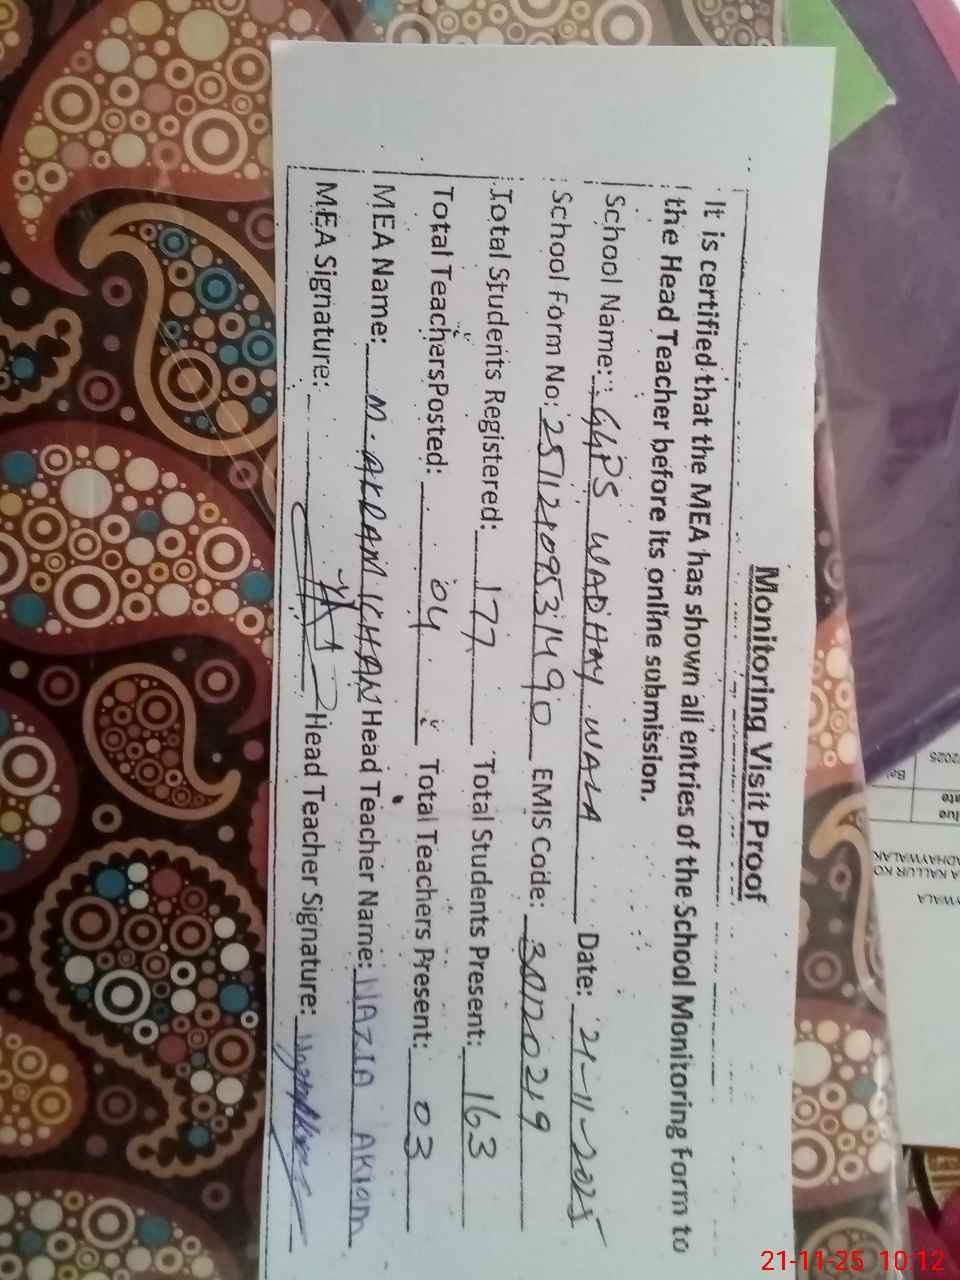 Monitoring Visit Proof
It is certified that the MEA has shown all entries of the School Monitoring Form to
the Head Teacher before its online submission.
School Name: GGPS WADHAY WALA Date: 21-11-2025
School Form No: EMIS Code:
Total Students Registered: 177 Total Students Present: 163
Total TeachersPosted: 04 Total Teachers Present: 03
MEA Name: M. AKRAM KHAN Head Teacher Name: NAZIA AKRAM
MEA Signature: Head Teacher Signature:
2025
ADHAYWALAK
A KALLUR KO
YWALA
21-11-25 10:12